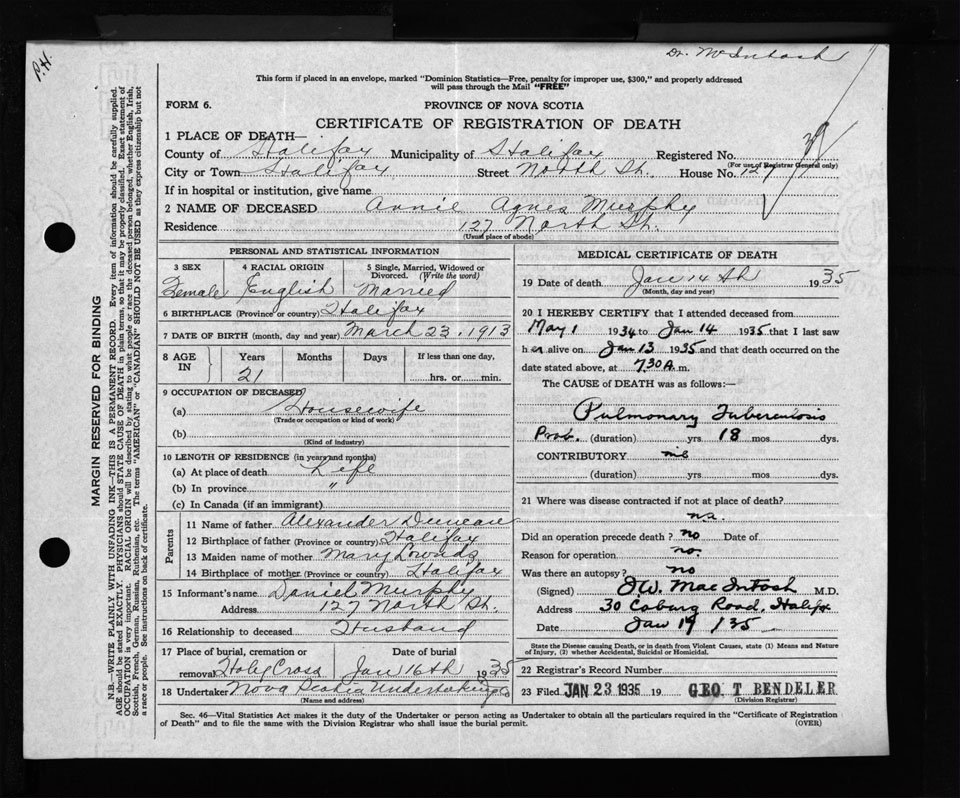 Dr. McIntosh
P.H.
This form if placed in an envelope, marked "Dominion Statistics—Free, penalty for improper use, $300," and properly addressed
will pass through the Mail "FREE"
FORM 6.
PROVINCE OF NOVA SCOTIA
CERTIFICATE OF REGISTRATION OF DEATH
1 PLACE OF DEATH—
County of Halifax Municipality of Halifax Registered No.
(For use of Registrar General only)
City or Town Halifax Street North St. House No. 127
If in hospital or institution, give name
2 NAME OF DECEASED Annie Agnes Murphy
Residence 127 North St.
(Usual place of abode)
PERSONAL AND STATISTICAL INFORMATION
3 SEX 4 RACIAL ORIGIN 5 Single, Married, Widowed or
Divorced. (Write the word)
Female English Married
6 BIRTHPLACE (Province or country) Halifax
7 DATE OF BIRTH (month, day and year) March 23, 1913
8 AGE IN Years Months Days If less than one day,
21 hrs. or min.
9 OCCUPATION OF DECEASED
(a) Housewife
(Trade or occupation or kind of work)
(b)
(Kind of industry)
10 LENGTH OF RESIDENCE (in years and months)
(a) At place of death Life
(b) In province "
(c) In Canada (if an immigrant)
Parents
11 Name of father Alexander Duncan
12 Birthplace of father (Province or country) Halifax
13 Maiden name of mother Mary Lownds
14 Birthplace of mother (Province or country) Halifax
15 Informant's name Daniel Murphy
Address 127 North St.
16 Relationship to deceased Husband
17 Place of burial, cremation or Date of burial
removal Holy Cross Jan 16th 1935
18 Undertaker Nova Scotia Undertaking Co
(Name and address)
MEDICAL CERTIFICATE OF DEATH
19 Date of death Jan 14th 1935
(Month, day and year)
20 I HEREBY CERTIFY that I attended deceased from
May 1 1934 to Jan 14 1935 that I last saw
h er alive on Jan 13 1935 and that death occurred on the
date stated above, at 7.30 A. m.
The CAUSE of DEATH was as follows:—
Pulmonary Tuberculosis
Prob. (duration) yrs 18 mos dys.
CONTRIBUTORY nil
(duration) yrs mos dys.
21 Where was disease contracted if not at place of death?
n.a.
Did an operation precede death? no Date of
Reason for operation no
Was there an autopsy? no
(Signed) J.W. MacIntosh M.D.
Address 30 Coburg Road, Halifx
Date Jan 19 / 35
State the Disease causing Death, or in death from Violent Causes, state (1) Means and Nature
of Injury, (2) whether Accidental, Suicidal or Homicidal.
22 Registrar's Record Number
23 Filed JAN 23 1935 19 GEO. T BENDELER
(Division Registrar)
Sec. 46—Vital Statistics Act makes it the duty of the Undertaker or person acting as Undertaker to obtain all the particulars required in the "Certificate of Registration
of Death" and to file the same with the Division Registrar who shall issue the burial permit. (OVER)
MARGIN RESERVED FOR BINDING
N.B.—WRITE PLAINLY WITH UNFADING INK—THIS IS A PERMANENT RECORD. Every item of information should be carefully supplied.
AGE should be stated EXACTLY. PHYSICIANS should STATE CAUSE OF DEATH in plain terms, so that it may be properly classified. Exact statement of
OCCUPATION is very important. RACIAL ORIGIN will be described by stating to what people or race the deceased person belonged, whether English, Irish,
Scottish, French, German, Russian, Ruthenian, etc. The terms "AMERICAN" or "CANADIAN" SHOULD NOT BE USED as they express citizenship but not
a race or people. See instructions on back of certificate.